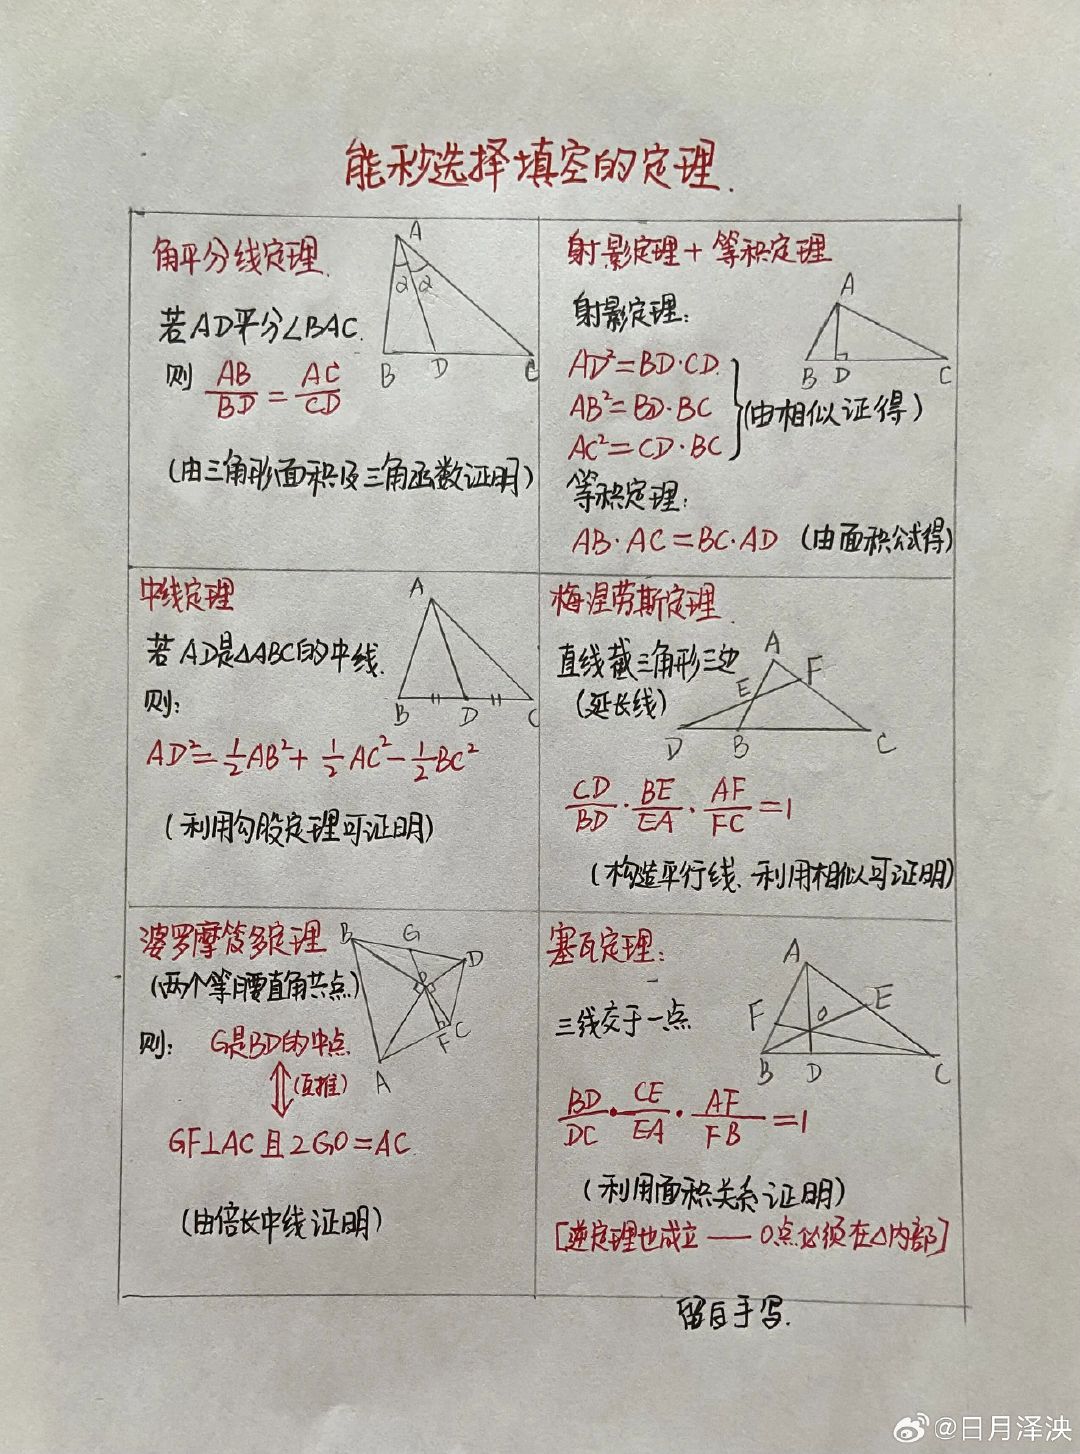 能秒选择填空的定理.
角平分线定理.
A
α α
B D C
若AD平分∠BAC.
则 AB/BD = AC/CD
(由三角形面积及三角函数证明)
射影定理+等积定理
射影定理:
A
B D C
AD²=BD·CD.
AB²=BD·BC
AC²=CD·BC
(由相似证得)
等积定理:
AB·AC=BC·AD (由面积公式得)
中线定理
A
B D C
若AD是△ABC的中线.
则:
AD²=1/2AB²+1/2AC²-1/2BC²
(利用勾股定理可证明)
梅涅劳斯定理.
直线截三角形三边
(延长线)
A
E F
D B C
CD/BD·BE/EA·AF/FC=1
(构造平行线.利用相似可证明)
婆罗摩笈多定理
(两个等腰直角共点)
B G D
O
F C
A
则: G是BD的中点.
(互推)
GF⊥AC且2GO=AC.
(由倍长中线证明)
塞瓦定理:
三线交于一点
A
F O E
B D C
BD/DC·CE/EA·AF/FB=1
(利用面积关系证明)
[逆定理也成立——O点必须在△内部]
留白手写.
@日月泽泱